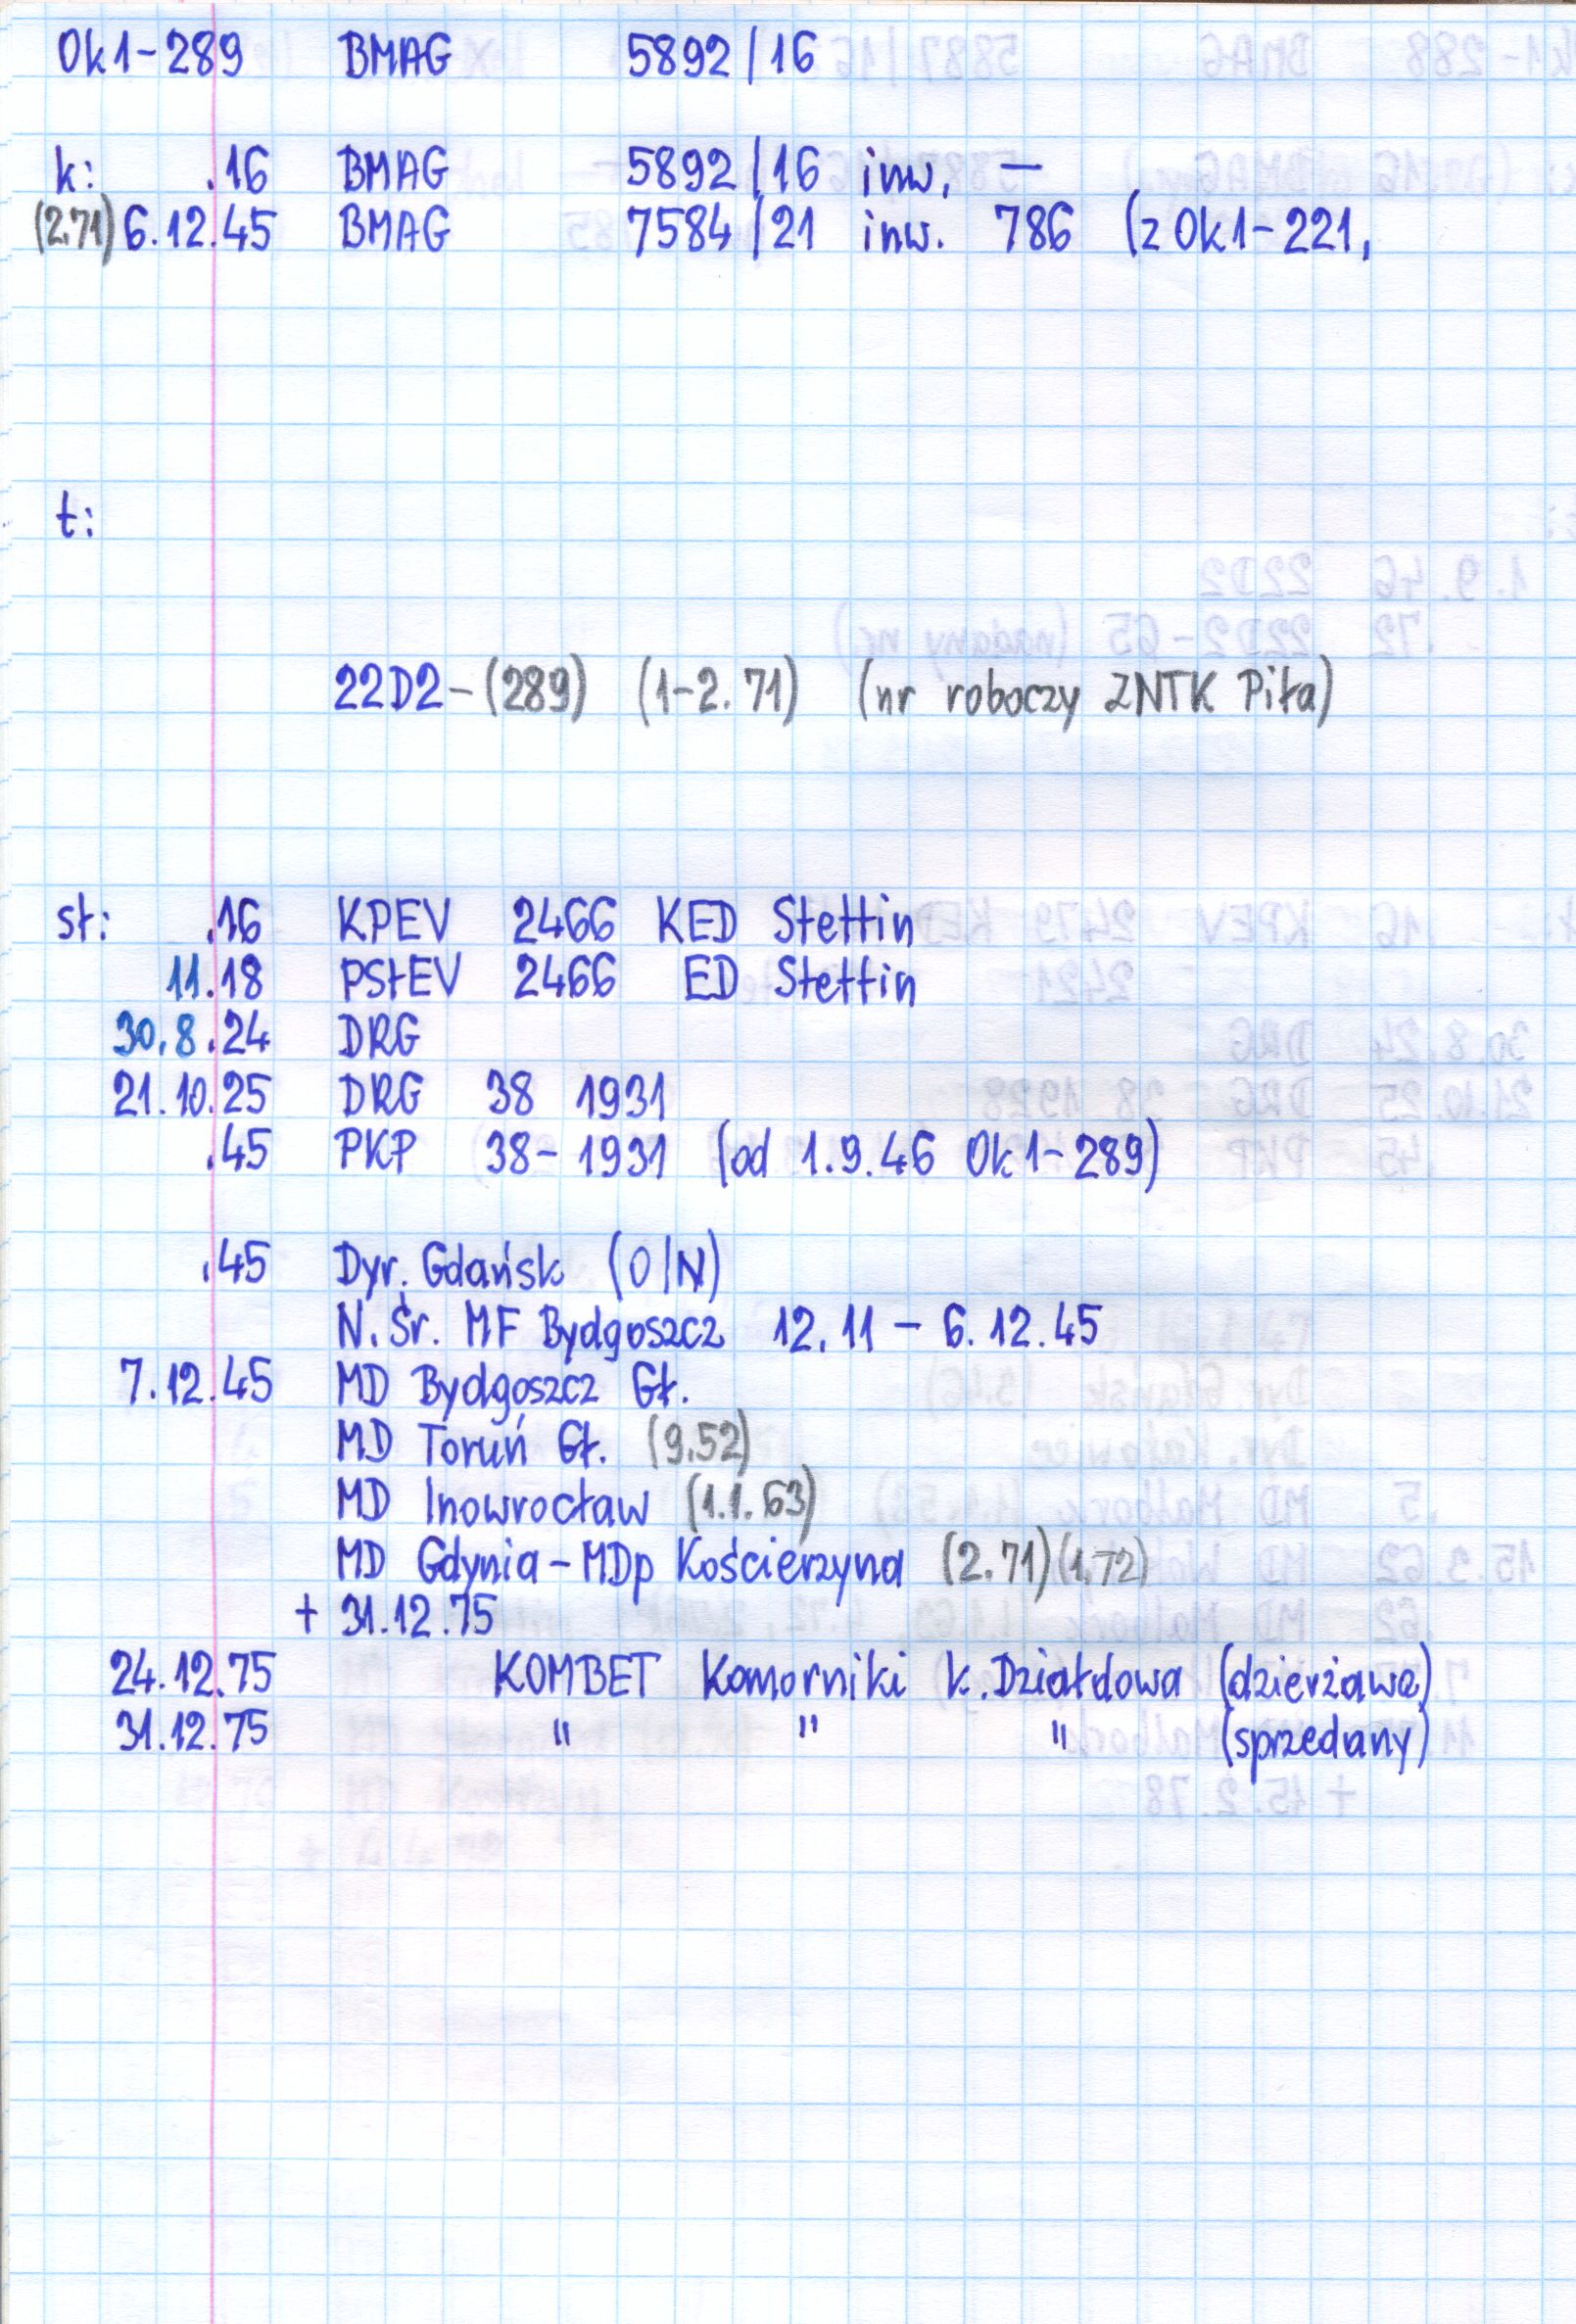 Ok1-289 BMAG 5892/16
k: .16 BMAG 5892/16 inw. —
(2.71) 6.12.45 BMAG 7584/21 inw. 786 (z Ok1-221,
t:
22D2-(289) (1-2.71) (nr roboczy ZNTK Piła)
sł: .16 KPEV 2466 KED Stettin
11.18 PStEV 2466 ED Stettin
30.8.24 DRG
21.10.25 DRG 38 1931
.45 PKP 38-1931 (od 1.9.46 Ok1-289)
.45 Dyr. Gdańsk (O/N)
N.Śr. MF Bydgoszcz 12.11 - 6.12.45
7.12.45 MD Bydgoszcz Gł.
MD Toruń Gł. (9.52)
MD Inowrocław (1.1.63)
MD Gdynia-MDp Kościerzyna (2.71) (1.72)
+ 31.12.75
24.12.75 KOMBET Komorniki k.Działdowa (dzierżawa)
31.12.75 " " " (sprzedany)